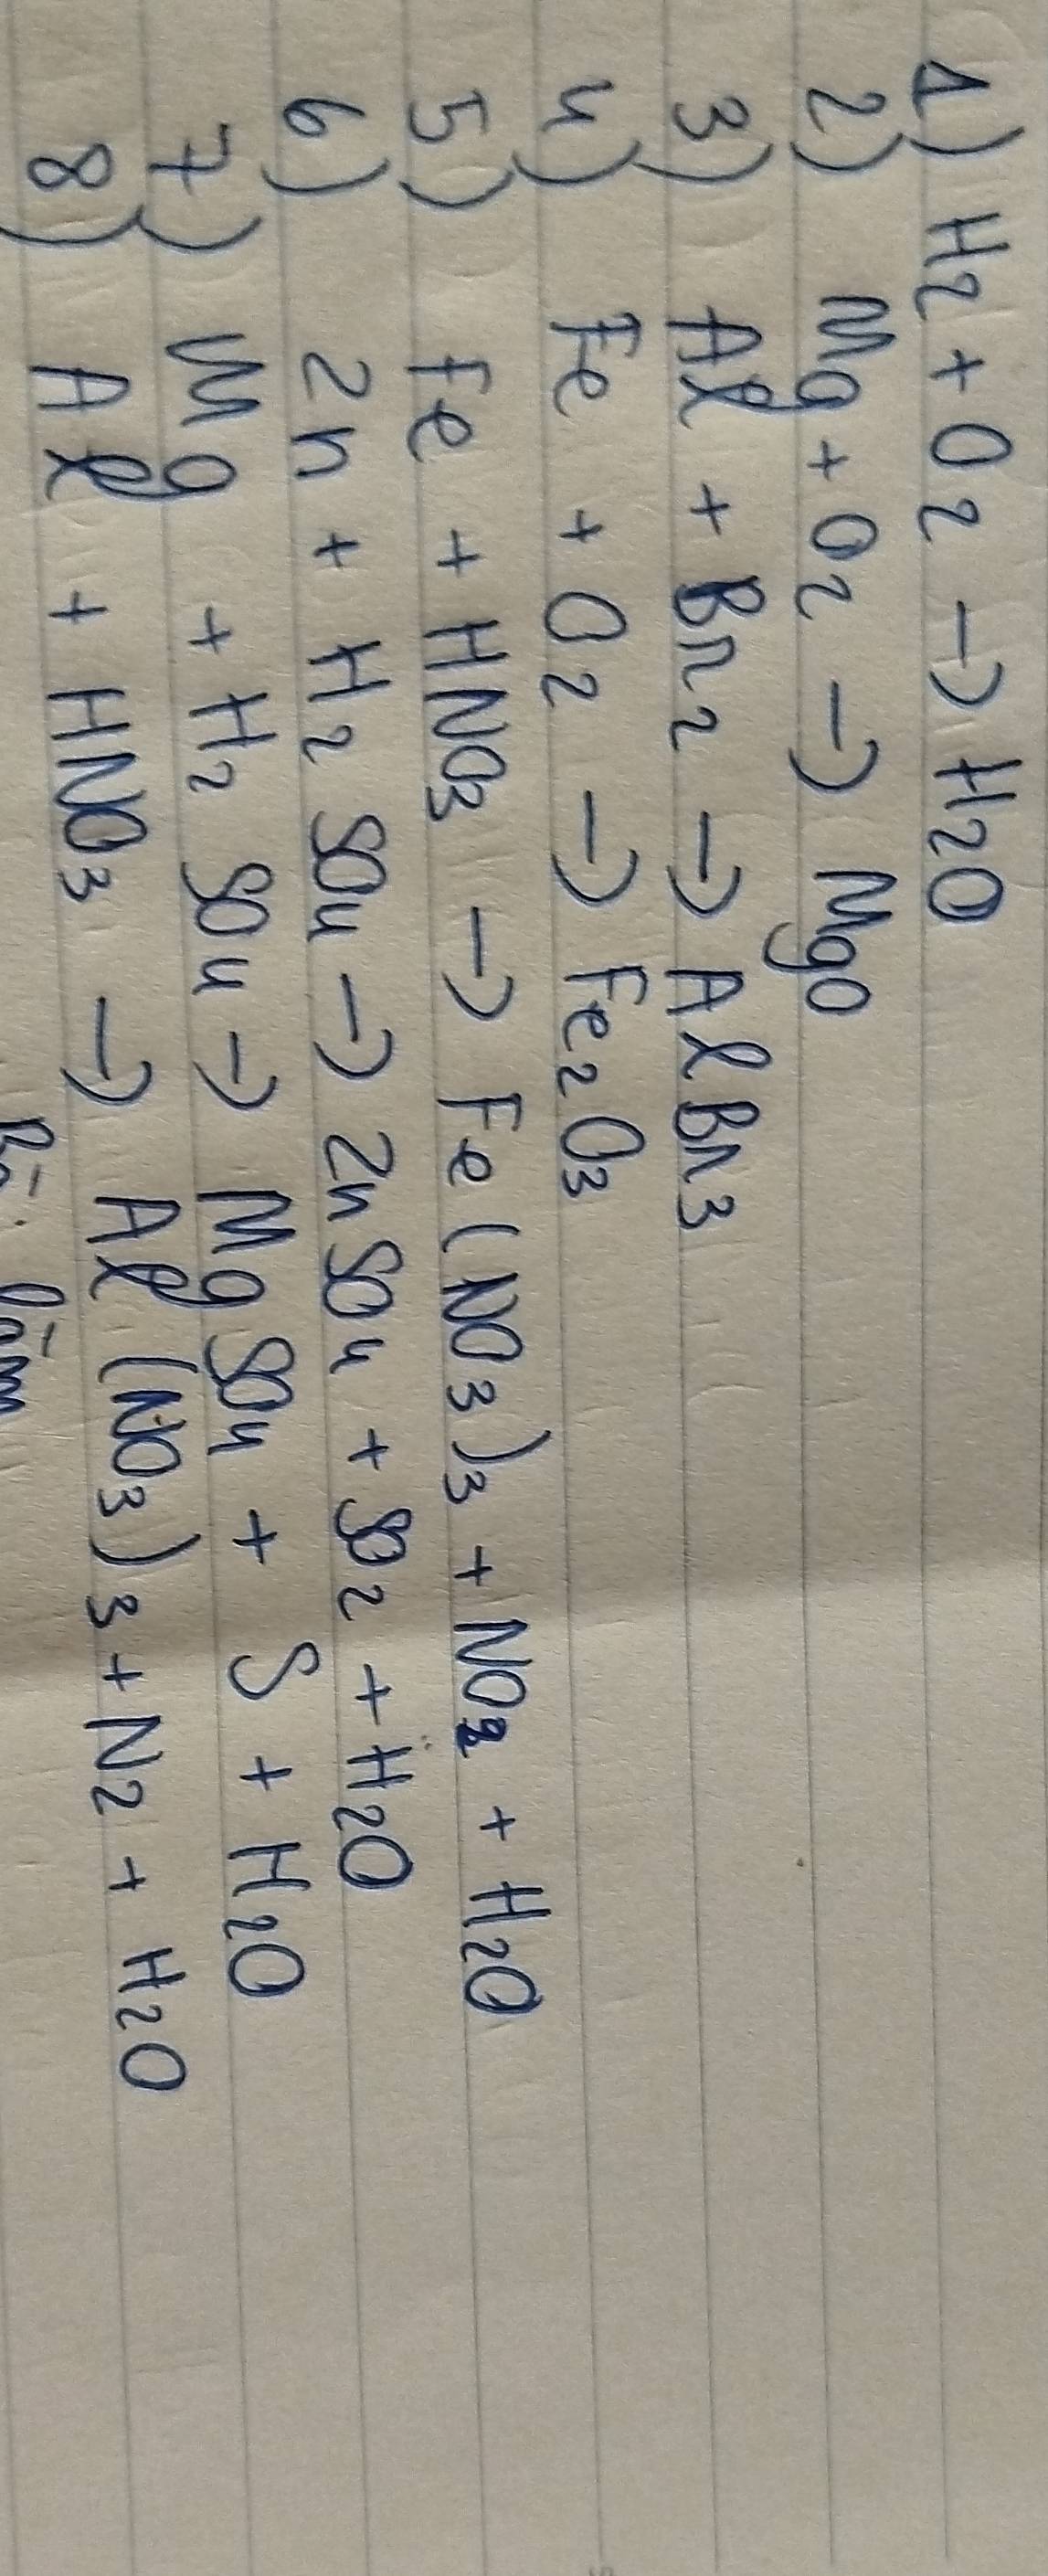 1) H2 + O2 → H2O
2) Mg + O2 → MgO
3) Al + Br2 → AlBr3
4) Fe + O2 → Fe2O3
5) Fe + HNO3 → Fe(NO3)3 + NO2 + H2O
6) Zn + H2SO4 → ZnSO4 + SO2 + H2O
7) Mg + H2SO4 → MgSO4 + S + H2O
8) Al + HNO3 → Al(NO3)3 + N2 + H2O